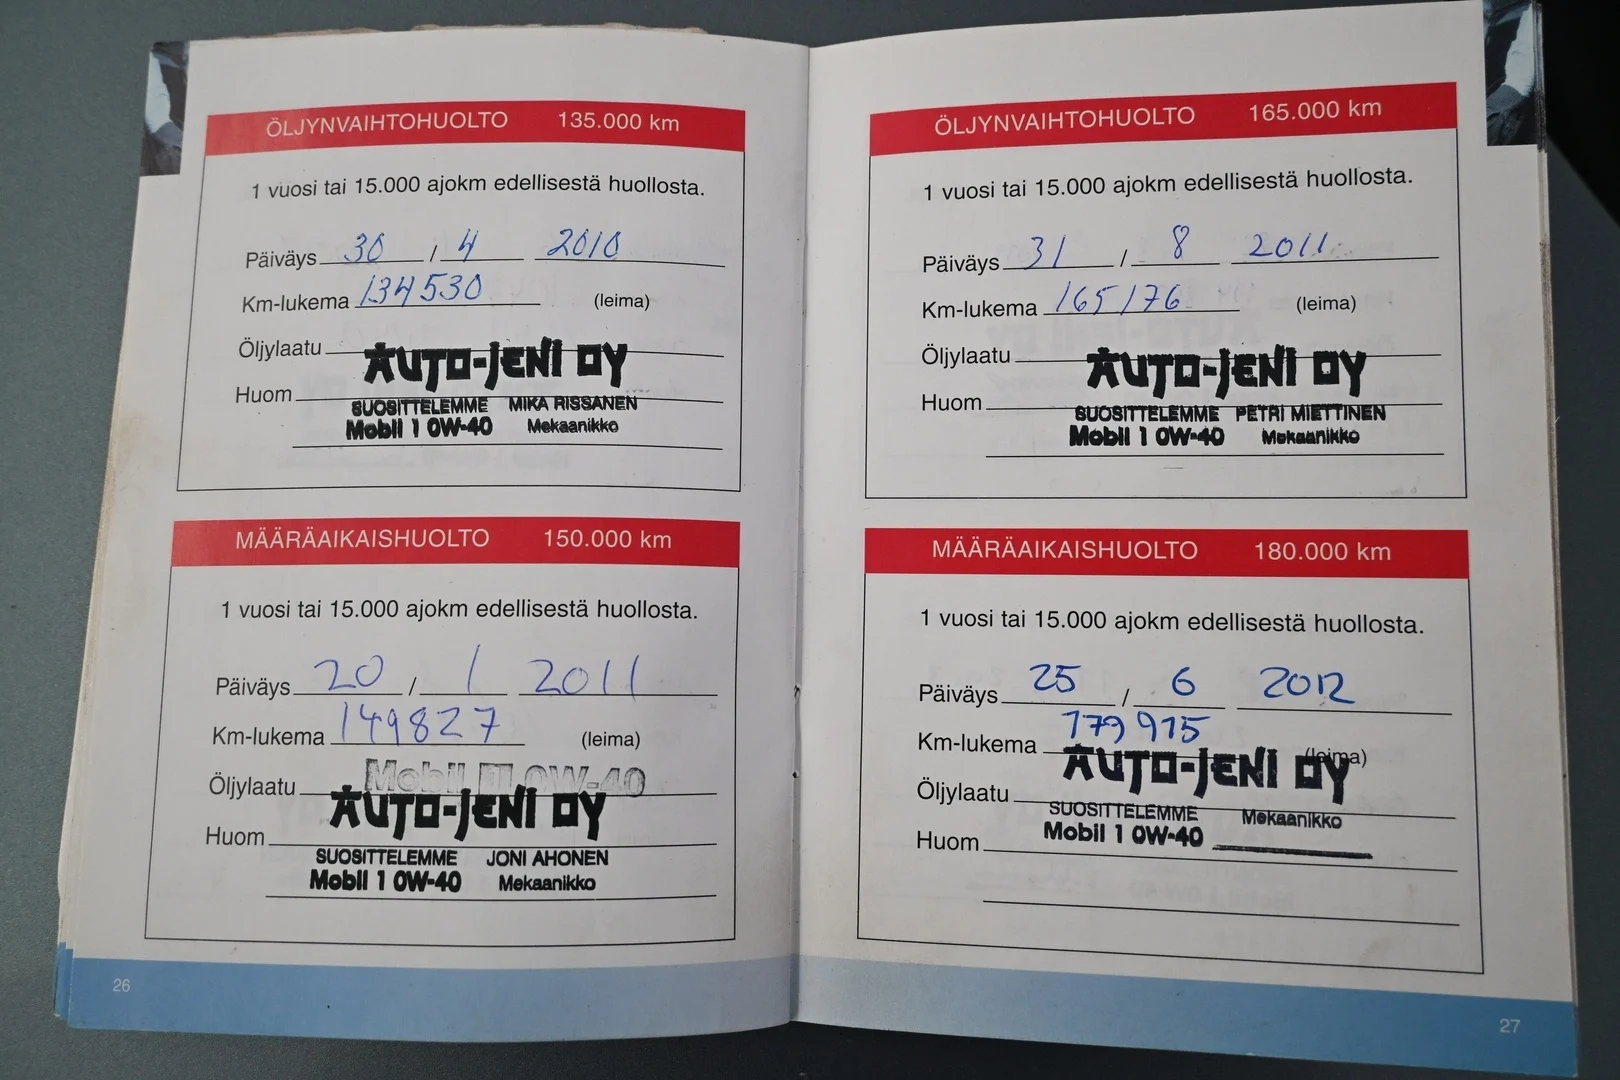 ÖLJYNVAIHTOHUOLTO 135.000 km
1 vuosi tai 15.000 ajokm edellisestä huollosta.
Päiväys 30 / 4 2010
Km-lukema 134530 (leima)
Öljylaatu
AUTO-JENI OY
Huom
SUOSITTELEMME MIKA RISSANEN
Mobil 1 0W-40 Mekaanikko
MÄÄRÄAIKAISHUOLTO 150.000 km
1 vuosi tai 15.000 ajokm edellisestä huollosta.
Päiväys 20 / 1 2011
Km-lukema 149827 (leima)
Öljylaatu Mobil 1 0W-40
AUTO-JENI OY
Huom
SUOSITTELEMME JONI AHONEN
Mobil 1 0W-40 Mekaanikko
26
ÖLJYNVAIHTOHUOLTO 165.000 km
1 vuosi tai 15.000 ajokm edellisestä huollosta.
Päiväys 31 / 8 2011
Km-lukema 165176 (leima)
Öljylaatu
AUTO-JENI OY
Huom
SUOSITTELEMME PETRI MIETTINEN
Mobil 1 0W-40 Mekaanikko
MÄÄRÄAIKAISHUOLTO 180.000 km
1 vuosi tai 15.000 ajokm edellisestä huollosta.
Päiväys 25 / 6 2012
Km-lukema 179915 (leima)
AUTO-JENI OY
Öljylaatu
SUOSITTELEMME Mekaanikko
Mobil 1 0W-40
Huom
27